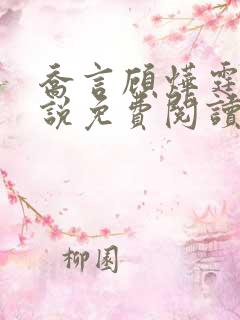 喬言顧燁霆
說免費閱讀
柳園